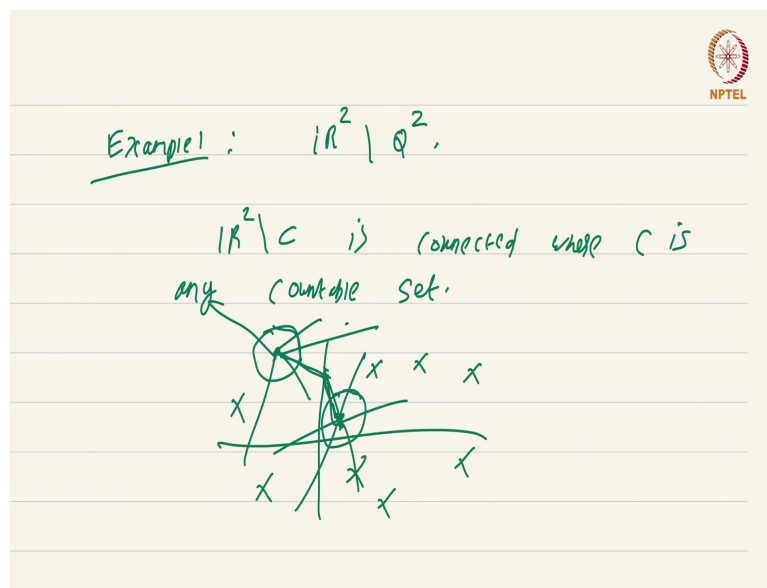 NPTEL
Example: ℝ² \ ℚ².
ℝ² \ C is connected where C is
any countable set.